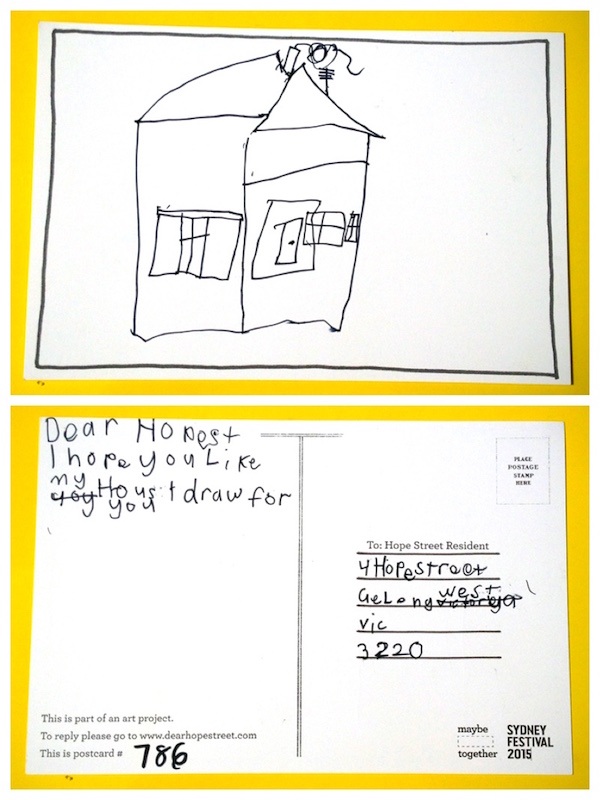 Dear Hopest
I hope you Like
my House I draw for
you
PLACE
POSTAGE
STAMP
HERE
To: Hope Street Resident
4 Hopestreet
GeLong west
vic
3220
This is part of an art project.
To reply please go to www.dearhopestreet.com
This is postcard # 786
maybe
together
SYDNEY
FESTIVAL
2015